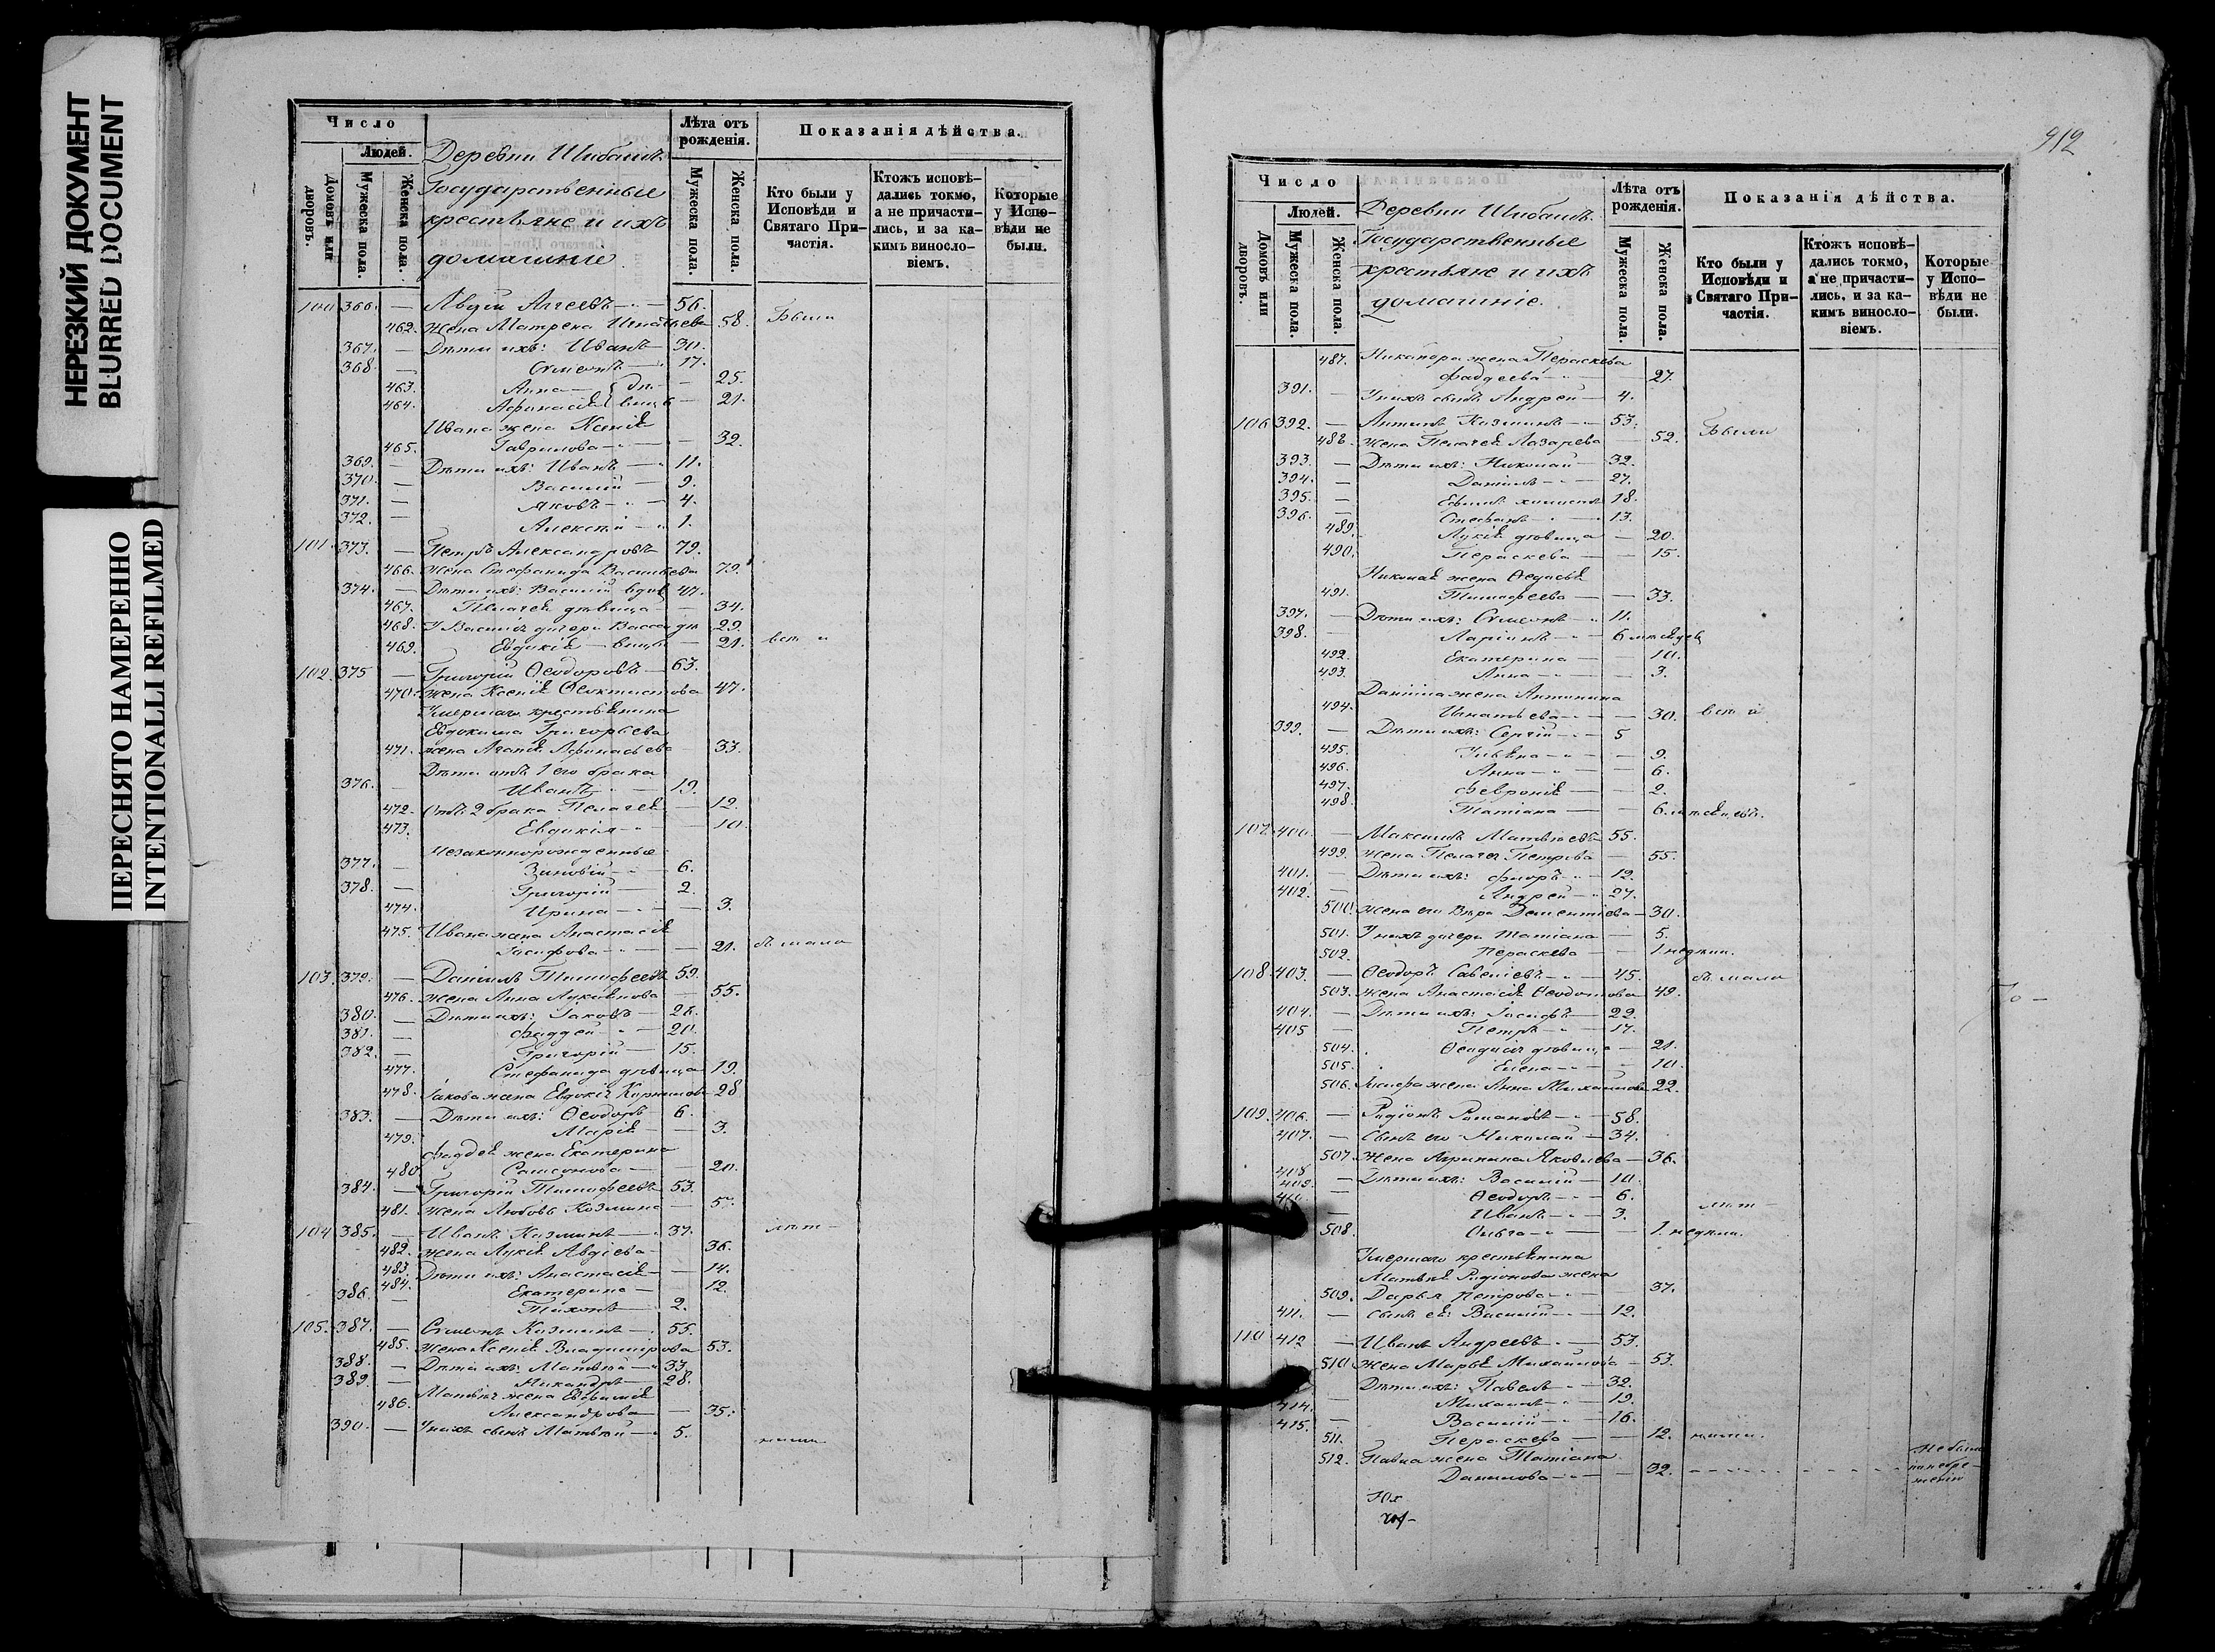 НЕРЕЗКИЙ ДОКУМЕНТ
BLURRED DOCUMENT
ПЕРЕСНЯТО НАМЕРЕННО
INTENTIONALLI REFILMED
Число
Людей.
Домовъ или дворовъ.
Мужеска пола.
Женска пола.
Деревни Шибаихъ
Государственные
крестьяне и ихъ
домашніе.
Лѣта отъ рожденія.
Мужеска пола.
Женска пола.
Показанія дѣйства.
Кто были у Исповѣди и Святаго При-частія.
Ктожъ исповѣ-дались токмо, а не причасти-лись, и за ка-кимъ винословіемъ.
Которые у Испо-вѣди не были.
100 366. — Авдій Аггеевъ — 56.
462. Жена Матрена Игнатьева 58. Были
367. — Дѣти ихъ: Иванъ — 30.
368. — Симеонъ — 17.
463. Анна — дѣ- — 25.
464. Афанасія вицы — 21.
Ивана жена Ксенія
465. Гаврилова — — 32.
369. — Дѣти ихъ: Иванъ — 11.
370. — Василій — 9.
371. — Яковъ — 4.
372. — Алексѣй — 1.
101. 373. — Петръ Александровъ 79.
466. Жена Стефанида Васильева 79.
374. — Дѣти ихъ: Василій вдов 47.
467. Пелагея дѣвица — 34.
468. У Василія дочери Васса дѣ 29.
469. Евдокія — вицы — 21.
102. 375 — Григорій Ѳеодоровъ — 63.
470. Жена Ксенія Ѳеоктистова 47.
Умершаго крестьянина
Евдокима Григорьева
471. жена Агапія Афанасьева 33.
Дѣти отъ 1 его брака
376. Иванъ — 19.
472. Отъ 2 брака Пелагея — 12.
473. Евдокія — — 10.
незаконнорожденные
377. — Зиновій — 6.
378. — Григорій — 2.
474. Ирина — — 3.
475. Ивана жена Анастасія
Іосифова — — 21.
103. 379. — Даніилъ Тимофеевъ 59.
476. Жена Анна Лукьянова — 55.
380. — Дѣти ихъ: Іаковъ — 26.
381. — Фаддей — 20.
382. — Григорій — 15.
477. Стефанида дѣвица 19.
478. Іакова жена Евдокія 28
383. — Дѣти ихъ: Ѳеодоръ — 6.
479. Марія — — 3.
Фаддея жена Екатерина
480 Самсонова — — 20.
384. — Григорій Тимофеевъ 53.
481. Жена Любовь Козмина —
104 385. — Иванъ Козминъ — 37.
482. Жена Лукія Авдіева — 36.
483 Дѣти ихъ: Анастасія — — 14.
484. Екатерина — 12.
386. — Тихонъ — 2.
105. 387. — Симеонъ Козминъ — 55.
485. Жена Ксенія Владимірова 53.
388. — Дѣти ихъ: Матвѣй — 33.
389. — Никандръ — 28.
Матвѣя жена Евфимія
486. Александрова — — 35.
390. — У нихъ сынъ Матвѣй — 5.
912
Число
Людей.
Домовъ или дворовъ.
Мужеска пола.
Женска пола.
Деревни Шибаихъ
Государственные
крестьяне и ихъ
домашніе.
Лѣта отъ рожденія.
Мужеска пола.
Женска пола.
Показанія дѣйства.
Кто были у Исповѣди и Святаго При-частія.
Ктожъ исповѣ-дались токмо, а не причасти-лись, и за ка-кимъ винословіемъ.
Которые у Испо-вѣди не были.
487. жена Параскева
Фаддеева — — 27.
391. — У нихъ сынъ Андрей — 4.
106 392. — Антипъ Козминъ — 53.
488. Жена Пелагея Лазарева — 52. Были
393. — Дѣти ихъ: Николай — 32.
394. — Даніилъ — 27.
395. — Ефимъ 18.
396. — Стефанъ — 13.
489. Лукія дѣвица — 20.
490. Параскева — — 15.
Николая жена Ѳедосья
491. Тимофеева — — 33.
397. — Дѣти ихъ: Симеонъ — 11.
398. — Ларіонъ — 6 мѣсяцев
492. Екатерина — — 10.
493. Анна — — 3.
Даніила жена Антонина
494. Игнатьева — — 30.
399. — Дѣти ихъ: Сергій — 5
495. Ульяна — — 9.
496. Анна — — 6.
497. Февронія — — 2.
498 Татіана — — 6. мѣсяцевъ.
107. 400. — Максимъ Матвѣевъ 55.
499. Жена Пелагея Петрова — 55.
401. — Дѣти ихъ: Флоръ — 12.
402. — Андрей — 27.
500. Жена его Вѣра Дементіева — 30.
501. У нихъ дочери Татіана — 5.
502. Параскева — 1 недѣли.
108 403. — Ѳеодоръ Савеліевъ — 45.
503. Жена Анастасія Ѳеодотова 49.
404. — Дѣти ихъ: Іосифъ — 22.
405 — Петръ — 17.
504. Ѳеодосія дѣвица — 21.
505. Елена — — 10.
506. Іосифа жена Анна Михайлова 22.
109. 406. — Родіонъ Романовъ — 58.
407. — Сынъ его Николай — 34.
507 Жена Агрипина Яковлева — 36.
408 — Дѣти ихъ: Василій — 10.
409. — Ѳеодоръ — 6.
— Иванъ — 3.
508. Ольга — — 1. недѣли.
Умершаго крестьянина
Матвѣя Родіонова жена
509. Дарья Петрова — — 37.
411. — Сынъ ея: Василій — 12.
110 412 — Иванъ Андреевъ — 53.
510 Жена Марья Михайлова — 53.
Дѣти ихъ: Павелъ — 32.
414. — Михаилъ — 19.
415. — Василій — 16.
511. Параскева — — 12.
512. Павла жена Татіана
Данилова — — 32. Не была по небре-женію